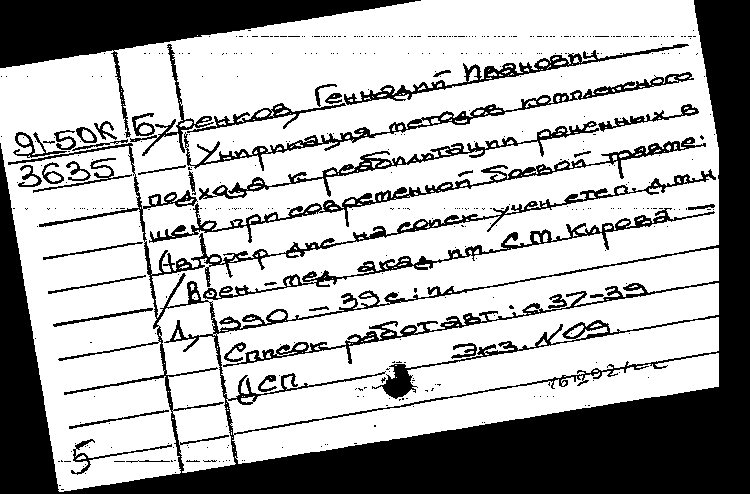 91-50К Буренков, Геннадий Иванович
3635
Унификация методов комплексного
подхода к реабилитации раненных в
шею при современной боевой травме:
Автореф дис на соиск. учен. степ. д.м.н.
/ Воен.-мед. акад. им. С.М. Кирова. —
Л., 1990. — 39 с.: ил.
Список работ авт.: с.37-39
ДСП. Экз. №09.
5